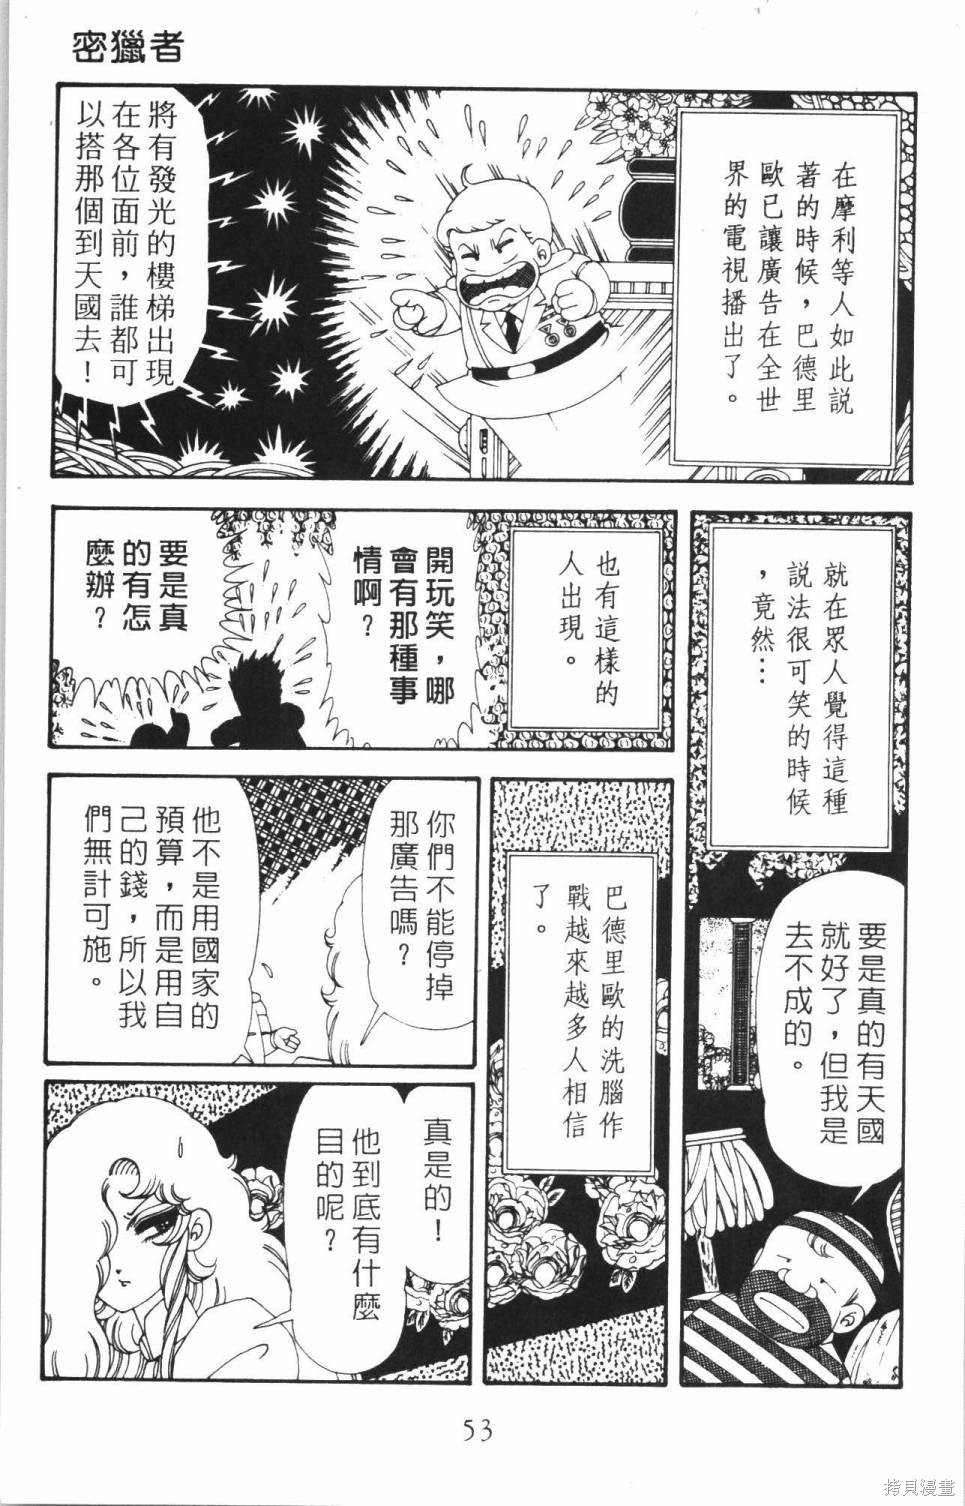 密獵者
在摩利等人如此說
著的時候，巴德里
歐已讓廣告在全世
界的電視播出了。
將有發光的樓梯出現
在各位面前，誰都可
以搭那個到天國去！
就在眾人覺得這種
說法很可笑的時候
，竟然…
也有這樣的
人出現。
開玩笑，哪
會有那種事
情啊？
要是真
的有怎
麼辦？
要是真的有天國
就好了，但我是
去不成的。
巴德里歐的洗腦作
戰越來越多人相信
了。
你們不能停掉
那廣告嗎？
他不是用國家的
預算，而是用自
己的錢，所以我
們無計可施。
真是的！
他到底有什麼
目的呢？
53
拷貝漫畫